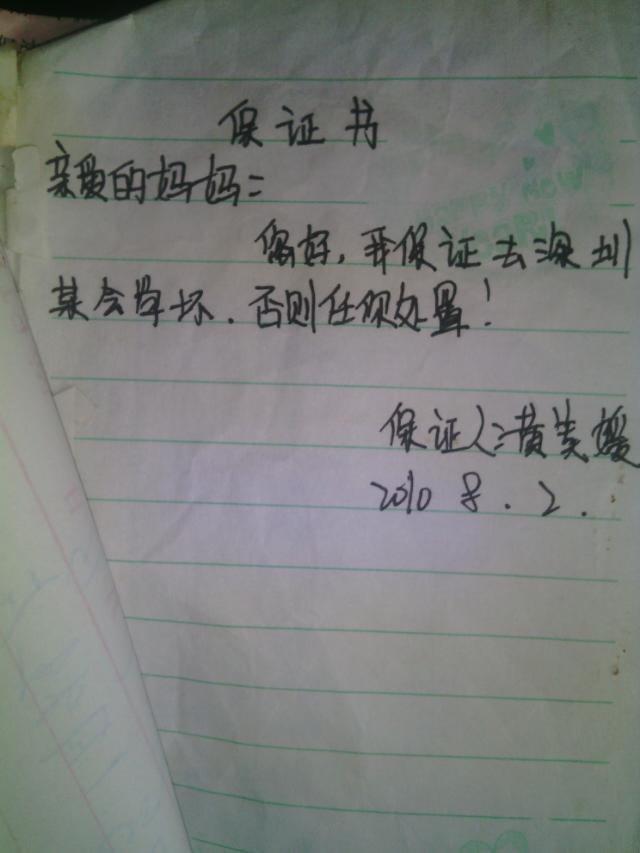 保证书
亲爱的妈妈:
您好,我保证去深圳
某会学坏.否则任你处置!
保证人:黄美媛
2010 8.2.